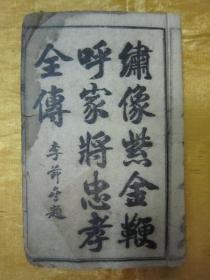 繡像紫金鞭
呼家將忠孝
全傳
李節若題